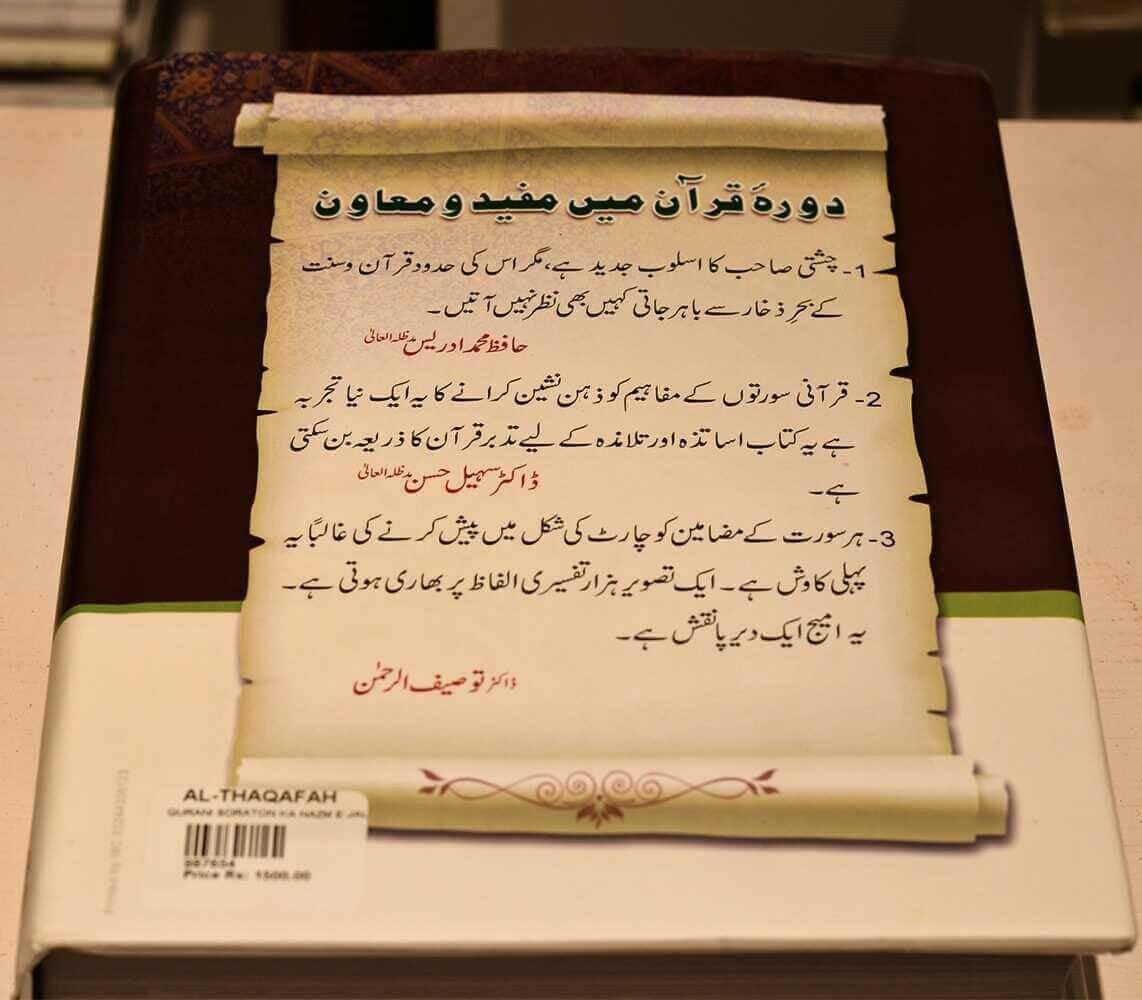 دورۂ قرآن میں مفید و معاون
1- چشتی صاحب کا اسلوب جدید ہے، مگر اس کی حدود قرآن و سنت
کے بحرِ ذخار سے باہر جاتی کہیں بھی نظر نہیں آتیں۔
حافظ محمد ادریس مدظلہ العالی
2- قرآنی سورتوں کے مفاہیم کو ذہن نشین کرانے کا یہ ایک نیا تجربہ
ہے یہ کتاب اساتذہ اور تلامذہ کے لیے تدبر قرآن کا ذریعہ بن سکتی
ہے۔
ڈاکٹر سہیل حسن مدظلہ العالی
3- ہر سورت کے مضامین کو چارٹ کی شکل میں پیش کرنے کی غالباً یہ
پہلی کاوش ہے۔ ایک تصویر ہزار تفسیری الفاظ پر بھاری ہوتی ہے۔
یہ امیج ایک دیرپا نقش ہے۔
ڈاکٹر توصیف الرحمٰن
AL-THAQAFAH
QURANI SORATON KA NAZM E JAL
Price Rs: 1500.00